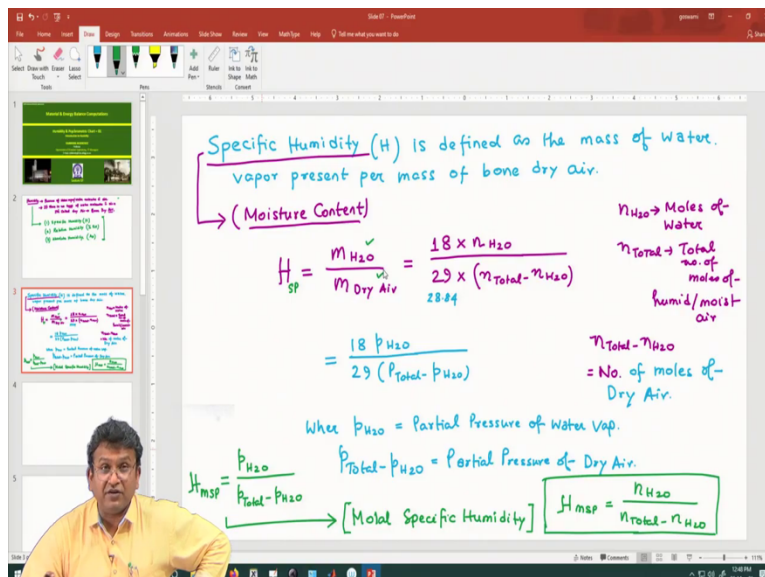 Slide 07 - PowerPoint
goswami
File Home Insert Draw Design Transitions Animations Slide Show Review View MathType Help Tell me what you want to do
Select Draw with Touch Eraser Lasso Select Add Pen Ruler Ink to Shape Ink to Math
Tools Pens Stencils Convert
1
Material & Energy Balance Computations
2
3
4
5
Specific Humidity (H) is defined as the mass of water.
vapor present per mass of bone dry air.
(Moisture Content)
H sp = m H2O / m Dry Air = 18 × n H2O / 29 × (n Total - n H2O)
28.84
n H2O → Moles of water
n TOTAL → Total no. of moles of humid/moist air
= 18 p H2O / 29 (P Total - p H2O)
n Total - n H2O
= No. of moles of Dry Air.
Wher p H2O = Partial Pressure of Water Vap.
p Total - p H2O = Partial Pressure of Dry Air.
H msp = p H2O / p Total - p H2O
→ [Molal Specific Humidity]
H msp = n H2O / n Total - n H2O
Slide 3
Notes Comments 111%
12:40 PM